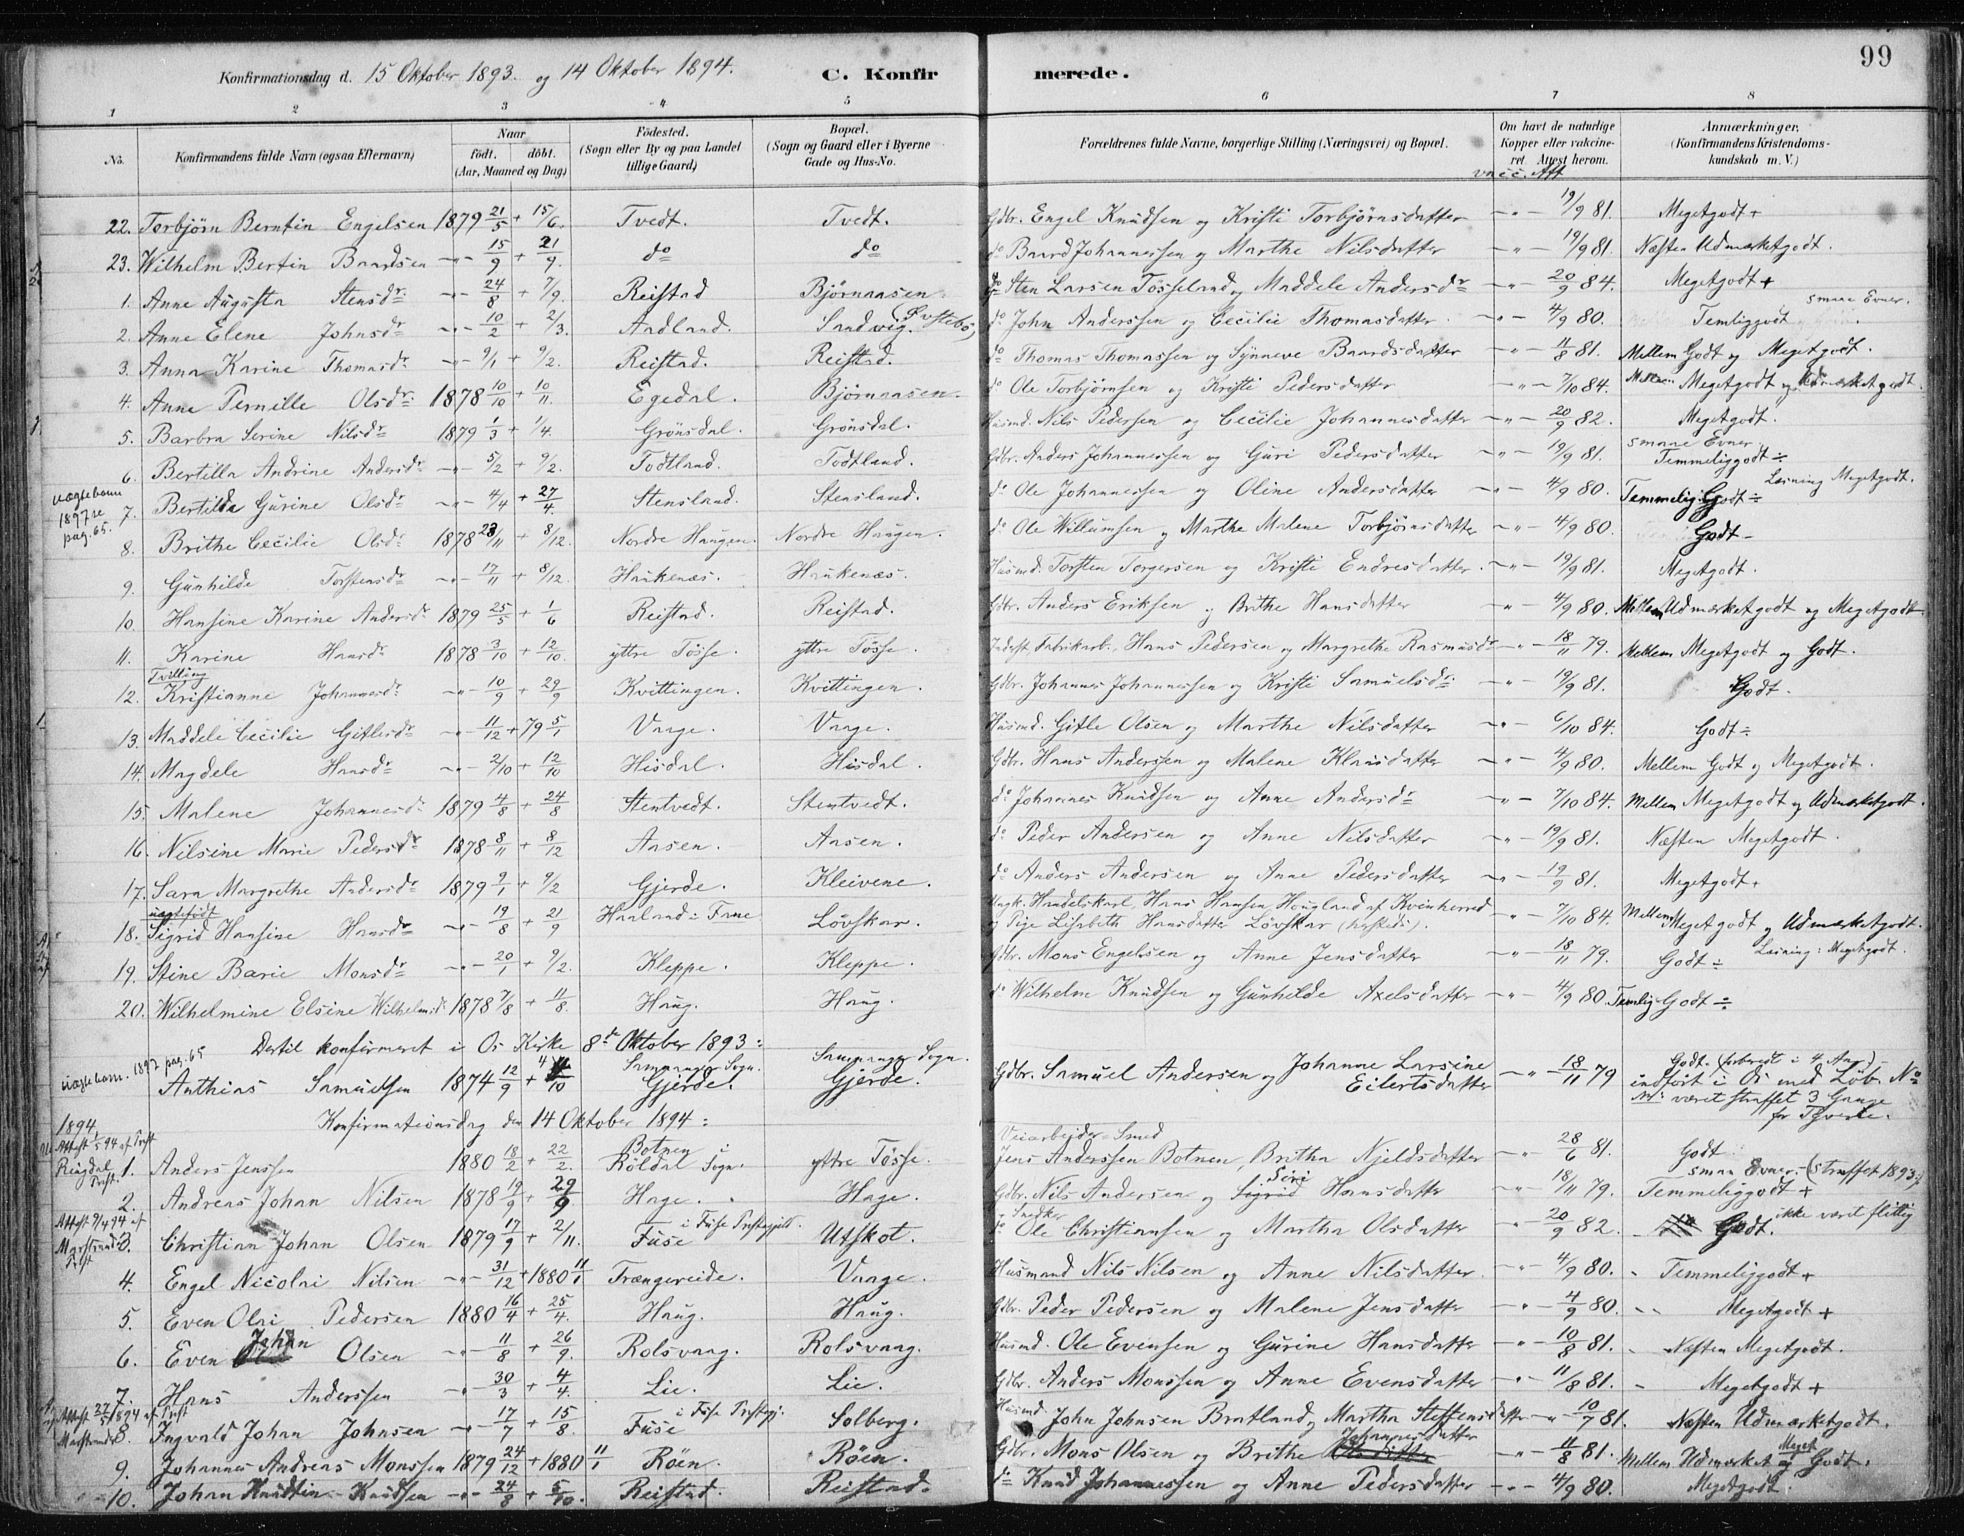 99
Konfirmationsdag d. 15 Oktober 1893. og 14 Oktober 1894. C. Konfirmerede.
1 2 3 4 5 6 7 8
No. Konfirmandens fulde Navn (ogsaa Efternavn) Naar født. døbt. (Aar, Maaned og Dag) Fødested. (Sogn eller By og paa Landet tillige Gaard) Bopæl. (Sogn og Gaard eller i Byerne Gade og Hus-No. Forældrenes fulde Navne, borgerlige Stilling (Næringsvei) og Bopæl. Om havt de naturlige Kopper eller vakcineret. Attest herom. Anmærkninger. (Konfirmandens Kristendomskundskab m. V.)
vacc. Att
22. Torbjørn Berntin Engelsen 1879 21/5 + 15/6. Tvedt. Tvedt. Gdbr. Engel Knudsen og Kristi Torbjørnsdatter -"- 19/9 81. Megetgodt +
23. Wilhelm Bertin Baardsen -"- 15/9 + 21/9. do do do Baard Johannessen og Marthe Nilsdatter -"- 19/9 81. Næsten Udmærketgodt.
1. Anne Augusta Stensdr -"- 24/8 + 7/9. Reistad Bjørnaasen. do Sten Larsen Tøsseland og Maddele Andersdr -"- 20/9 84. Megetgodt +
2. Anne Elene Johnsdr -"- 10/2 + 2/3. Aadland. Sandvig. do John Anderssen og Cecilie Thomasdatter -"- 4/9 80. Temliggodt smaa Evner.
3. Anna Karine Thomasdr -"- 9/1 + 9/2. Reistad. Reistad. do Thomas Thomassen og Synneve Baardsdatter -"- 11/8 81. Mellem Godt og Megetgodt.
4. Anne Pernille Olsdr 1878 10/10 + 10/11. Egedal. Bjørnaasen. do Ole Torbjørnsen og Kristi Pedersdatter -"- 7/10 84. Mellem Megetgodt og Udmærketgodt.
5. Barbra Serine Nilsdr 1879 1/3 + 1/4. Grønsdal. Grønsdal. Husmd. Nils Pedersen og Cecilie Johannesdatter -"- 20/9 82. Megetgodt.
6. Bertilla Andrine Andersdr -"- 5/2 + 9/2. Todtland. Todtland. Gdbr. Anders Johannessen og Guri Pedersdatter -"- 19/9 81. smaa Evner Temmeliggodt ÷
uægtebarn 1897 se pag. 65.
7. Bertilda Gurine Olsdr -"- 4/4 + 27/4. Stensland. Stensland. do Ole Johannessen og Oline Andersdatter -"- 4/9 80. Temmelig Godt ÷ Læsning Megetgodt.
8. Brithe Cecilie Olsdr 1878 23/11 + 8/12. Nordre Haugen. Nordre Haugen. do Ole Willumsen og Marthe Malene Torbjørnsdatter -"- 4/9 80. Godt -
9. Gunhilde Torstensdr -"- 17/11 + 8/12. Haukenæs. Haukenæs. Husmd. Torsten Torgersen og Kristi Endresdatter. -"- 19/9 81. Megetgodt.
10. Hansine Karine Andersdr 1879 25/5 + 1/6 Reistad. Reistad. Gdbr. Anders Eriksen og Brithe Hansdatter -"- 4/9 80. Mellem Udmærketgodt og Megetgodt.
11. Karine Hansdr 1878 3/10 + 12/10. yttre Tøsse. yttre Tøsse. Inderst Fabrikarb. Hans Pedersen og Margrethe Rasmusdr -"- 18/11 79. Mellem Megetgodt og Godt.
Tvilling
12. Kristianne Johannesdr -"- 10/9 + 29/9 Kvittingen. Kvittingen. Gdbr. Johannes Johannessen og Kristi Samuelsdr -"- 19/9 81. Godt.
13. Maddele Cecilie Gitlesdr -"- 11/12 + 79 5/1 Vaage. Vaage. Husmd. Gitle Olsen og Marthe Nilsdatter -"- 6/10 84. Godt ÷
14. Magdele Hansdr -"- 2/10 + 12/10 Hisdal. Hisdal. Gdbr. Hans Anderssen og Malene Klausdatter -"- 4/9 80. Mellem Godt og Megetgodt.
15. Malene Johannesdr 1879 4/8 + 24/8 Stentvedt. Stentvedt. do Johannes Knudsen og Anne Andersdr -"- 7/10 84. Mellem Megetgodt og Udmærketgodt.
16. Nilsine Marie Pedersdr 1878 8/11 + 8/12 Aasen. Aasen. do Peder Andersen og Anne Nilsdatter -"- 19/9 81. Næsten Megetgodt.
17. Sara Margrethe Andersdr 1879 9/1 + 9/2 Gjerde. Kleivene. do Anders Andersen og Anne Pedersdatter -"- 19/9 81. Megetgodt +
uægtefødt
18. Sigrid Hansine Hansdr -"- 19/8 + 21/9 Haaland i Fane Løvskar. Ungk. Handelskarl. Hans Hansen Hougland af Kvinherred og Pige Lisabeth Hansdatter Løvskar. -"- 7/10 84. Mellem Megetgodt og Udmærketgodt.
19. Stine Barie Monsdr -"- 20/1 + 9/2. Kleppe. Kleppe. Gdbr. Mons Engelsen og Anne Jensdatter -"- 18/11 79. Godt ÷ Læsning: Megetgodt.
20. Wilhelmine Elsine Wilhelmsd. 1878 7/8 + 11/8. Haug. Haug. do Wilhelm Knudsen og Gunhilde Axelsdatter -"- 4/9 80 Temlig Godt ÷
Dertil konfirmeret i Os Kirke 8de Oktober 1893:
uægtebarn. 1897 pag. 65
Anthias Samuelsen 1874 12/9 + 4/10 Samnanger Sogn. Gjerde. Samnanger Sogn. Gjerde. Gdbr. Samuel Andersen og Johanne Larsine Eilertsdatter -"- 18/11 79 Godt. (forberedt i 4 Aar) - indført i Os med Løb. No været straffet 3 Gange for Tyverie.
Konfirmationsdag den 14 Oktober 1894:
1894
Attest 94 af Prst Ringdal Prst.
1. Anders Jenssen 1880 18/2 + 22/2. Botnen i Røldal Sogn. yttre Tøsse. Veiarbejder-Smed Jens Anderssen Botnen, Britha Njeldsdatter -"- 28/6 81. Godt
2. Andreas Johan Nilsen 1878 19/9 + 29/9 Hage. Hage. Gdbr. Nils Andersen og Sigrid Siri Hansdatter -"- 18/11 79. smaa Evner - (straffet 1893) Temmeliggodt +
Attest 9/4 94 af Marstrand Prst
3. Christian Johan Olsen 1879 17/9 + 2/11. i Fuse Prstegjeld. Fuse Utskot. Snedker do Ole Christiansen og Martha Olsdatter -"- 20/9 82. Godt. ikke været flittig
4. Engel Nicolai Nilsen -"- 31/12 + 1880 11/1 Trængereide. Vaage. Husmand Nils Nilsen og Anne Nilsdatter. -"- 4/9 80. Temmeliggodt +
5. Even Olai Pedersen 1880 16/4 + 25/4. Haug. Haug. Gdbr. Peder Pedersen og Malene Jensdatter -"- 4/9 80. Megetgodt +
6. Even Johan Olsen -"- 11/8 + 26/9. Rolsvaag. Rolsvaag. Husmd. Ole Evensen og Gurine Hansdatter -"- 10/8 81. Næsten Megetgodt.
7. Hans Anderssen -"- 30/3 + 4/4. Lie. Lie. Gdbr. Anders Monssen og Anne Evensdatter -"- 11/8 81. Megetgodt +
Attest 27/5 1894 af Prst Marstrand
8. Ingvald Johan Johnsen -"- 17/7 + 15/8. i Fuse Prstegj. Fuse Solberg. Husmd John Johnsen Bratland og Martha Steffensdatter -"- 10/7 81. Næsten Udmærketgodt.
9. Johannes Andreas Monssen 1879 24/12 + 1880 11/1 Røen. Røen. Gdbr. Mons Olsen og Brithe Johannesdatter -"- 11/8 81. Mellem Udmærket og Meget Godt.
10. Johan Knudtin Knudsen -"- 24/8 + 5/10. Reistad. Reistad. do Knud Johannessen og Anne Pedersdatter -"- 4/9 80. Megetgodt.